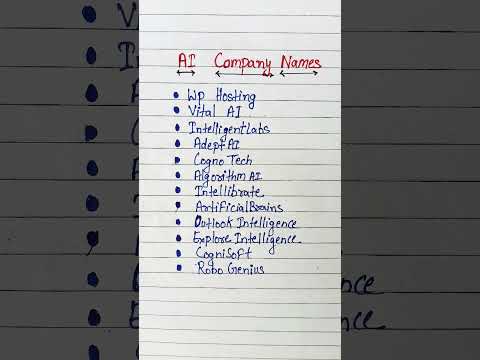 AI Company Names
Wp Hosting
Vital AI
IntelligentLabs
Adept AI
Cogno Tech
Algorithm AI
Intellibrate
ArtificialBrains
Outlook Intelligence
Explore Intelligence
CogniSoft
Robo Genius